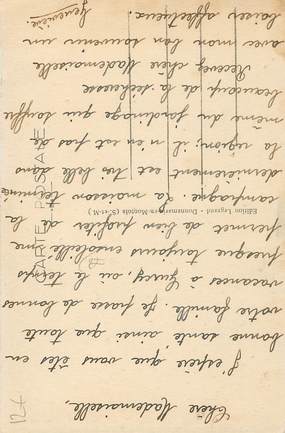 Chère Mademoiselle,
J'espère que vous êtes en
bonne santé, ainsi que toute
votre famille. Je passe de bonnes
vacances à Jurcy, où le temps
presque toujours ensoleillé me
permet de bien profiter de la
campagne. La moisson terminée
dernièrement est très belle dans
la région; il n'en est pas de
même du jardinage qui souffre
beaucoup de la sécheresse.
Recevez, chère Mademoiselle
avec mon bon souvenir un
baiser affectueux.
Geneviève.
CARTE POSTALE
Edition Legrand - Donnemarie-en-Montois (S.-et-M.)